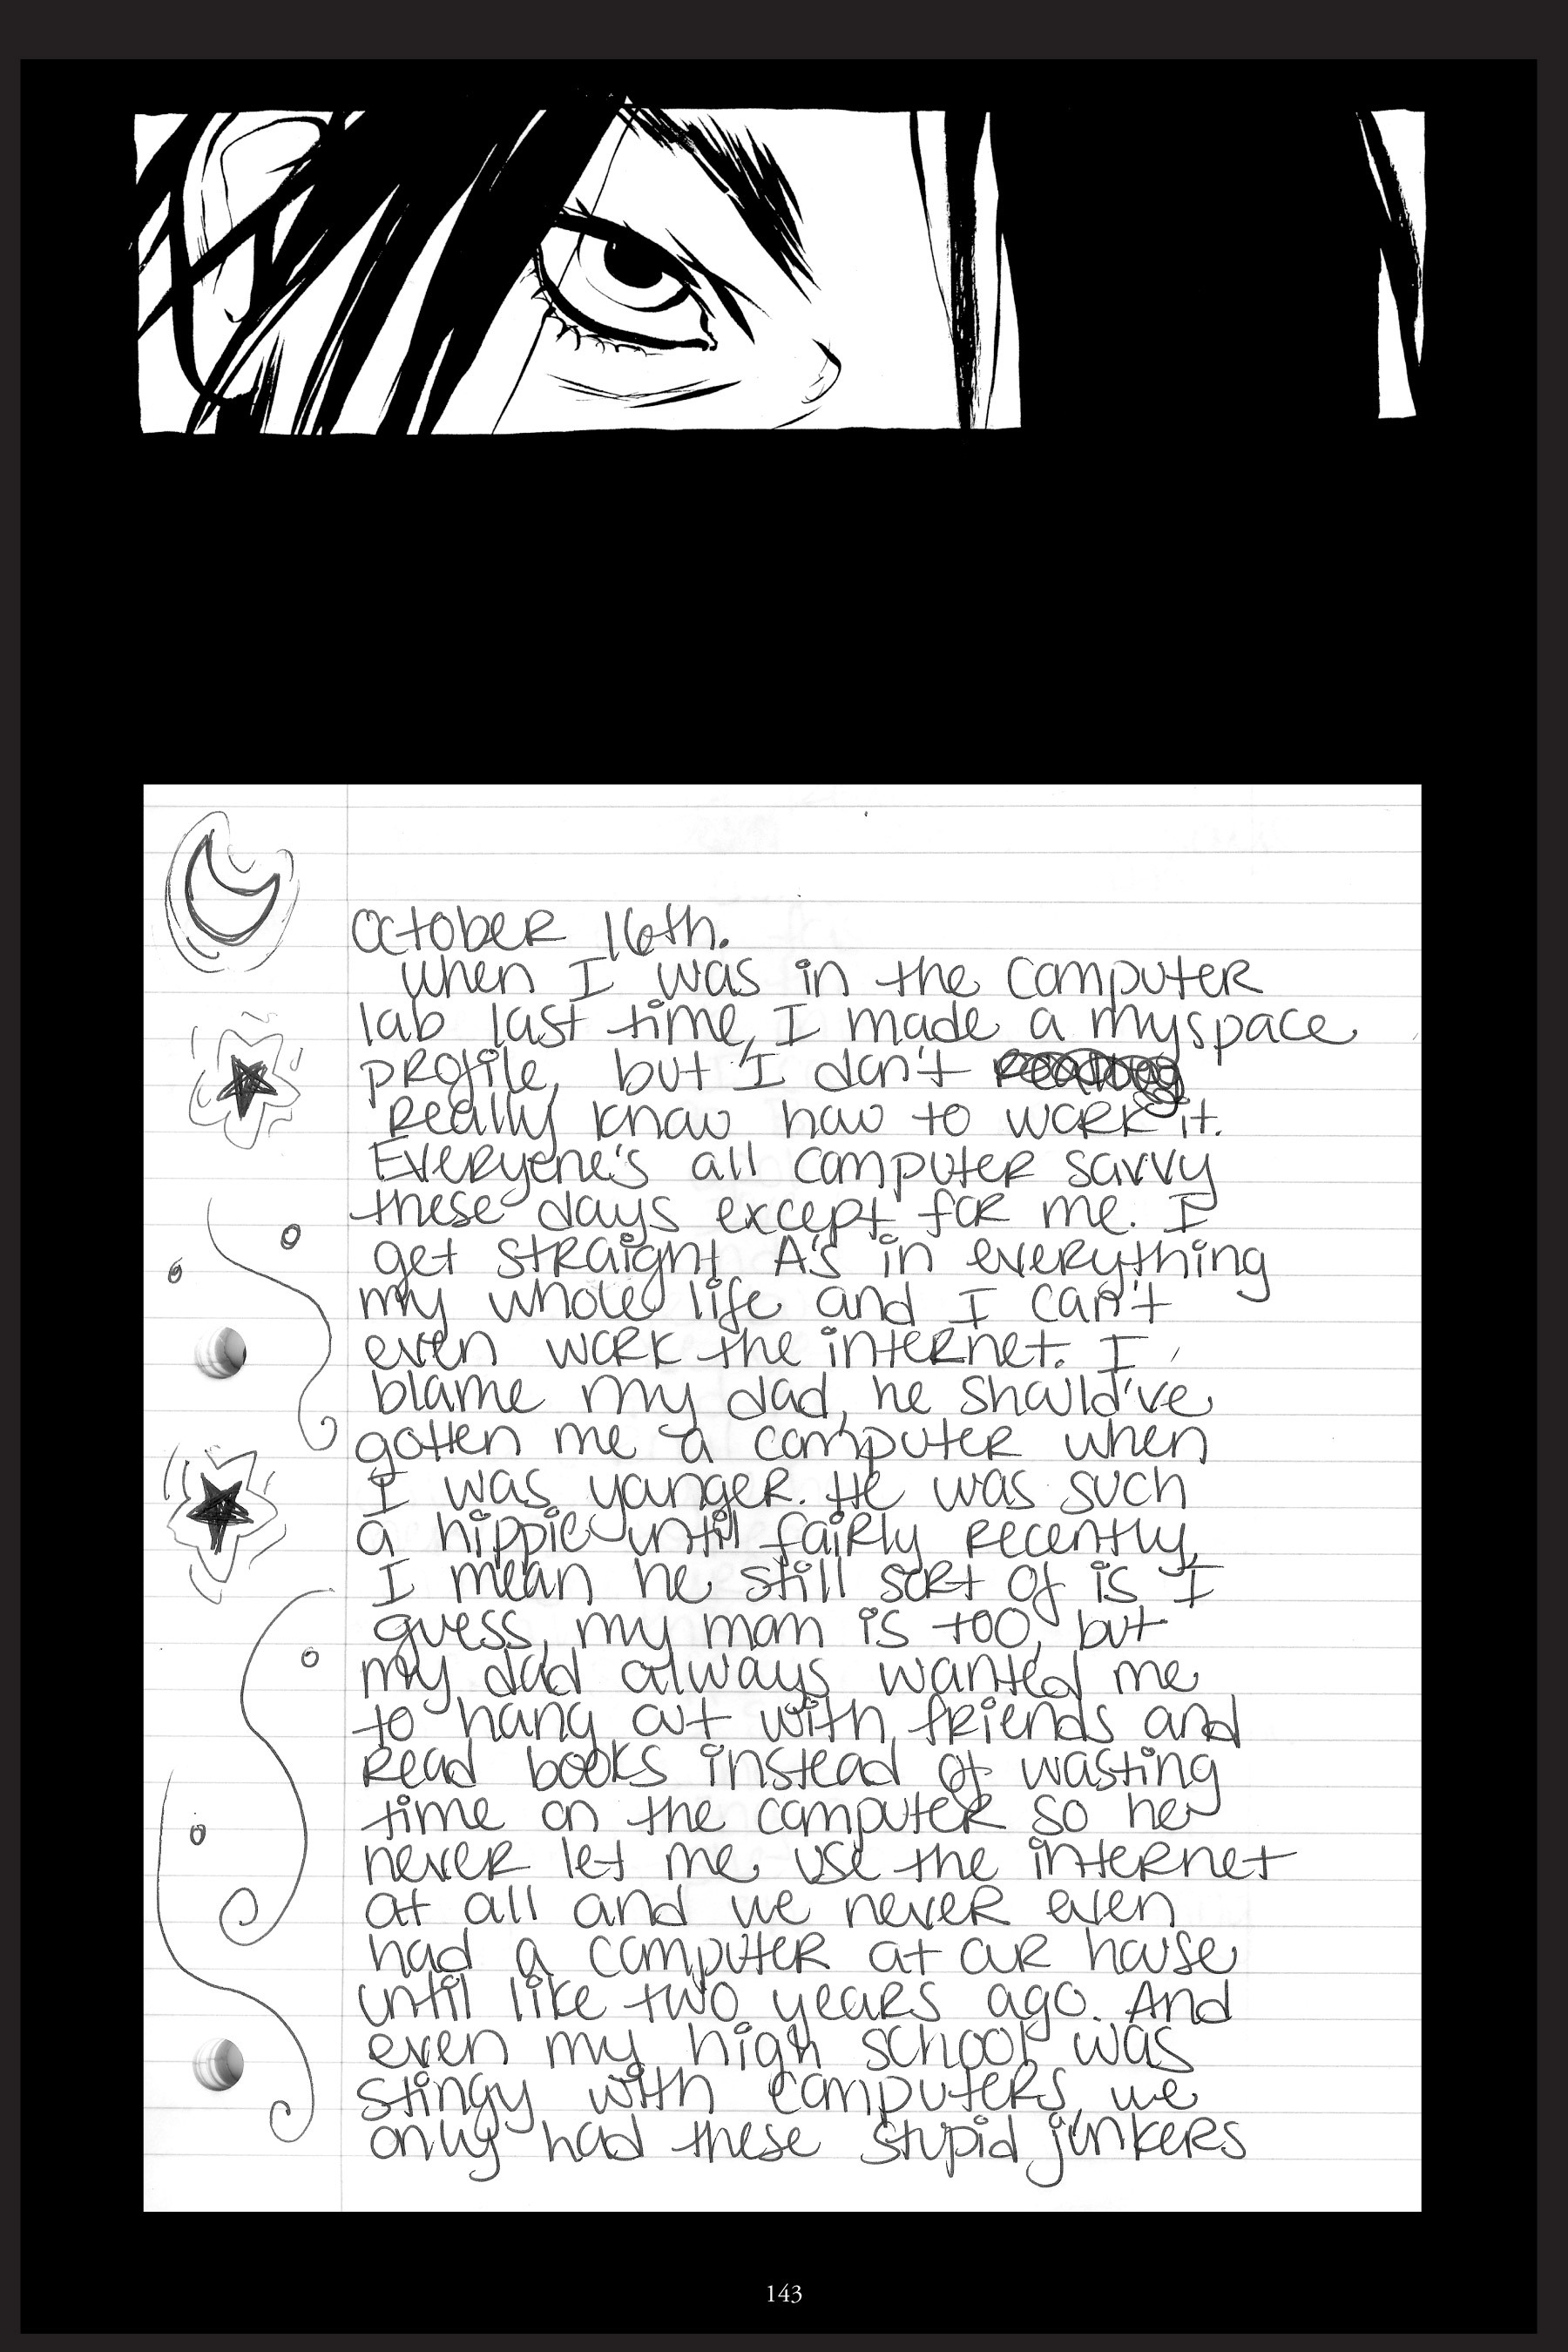 October 16th.
When I was in the computer
lab last time, I made a myspace
profile, but I don't
really know how to work it.
Everyone's all computer savvy
these days except for me. I
get straight A's in everything
my whole life and I can't
even work the internet. I
blame my dad, he should've
gotten me a computer when
I was younger. He was such
a hippie until fairly recently,
I mean he still sort of is I
guess, my mom is too, but
my dad always wanted me
to hang out with friends and
read books instead of wasting
time on the computer so he
never let me use the internet
at all and we never even
had a computer at our house
until like two years ago. And
even my high school was
stingy with computers, we
only had these stupid junkers
143